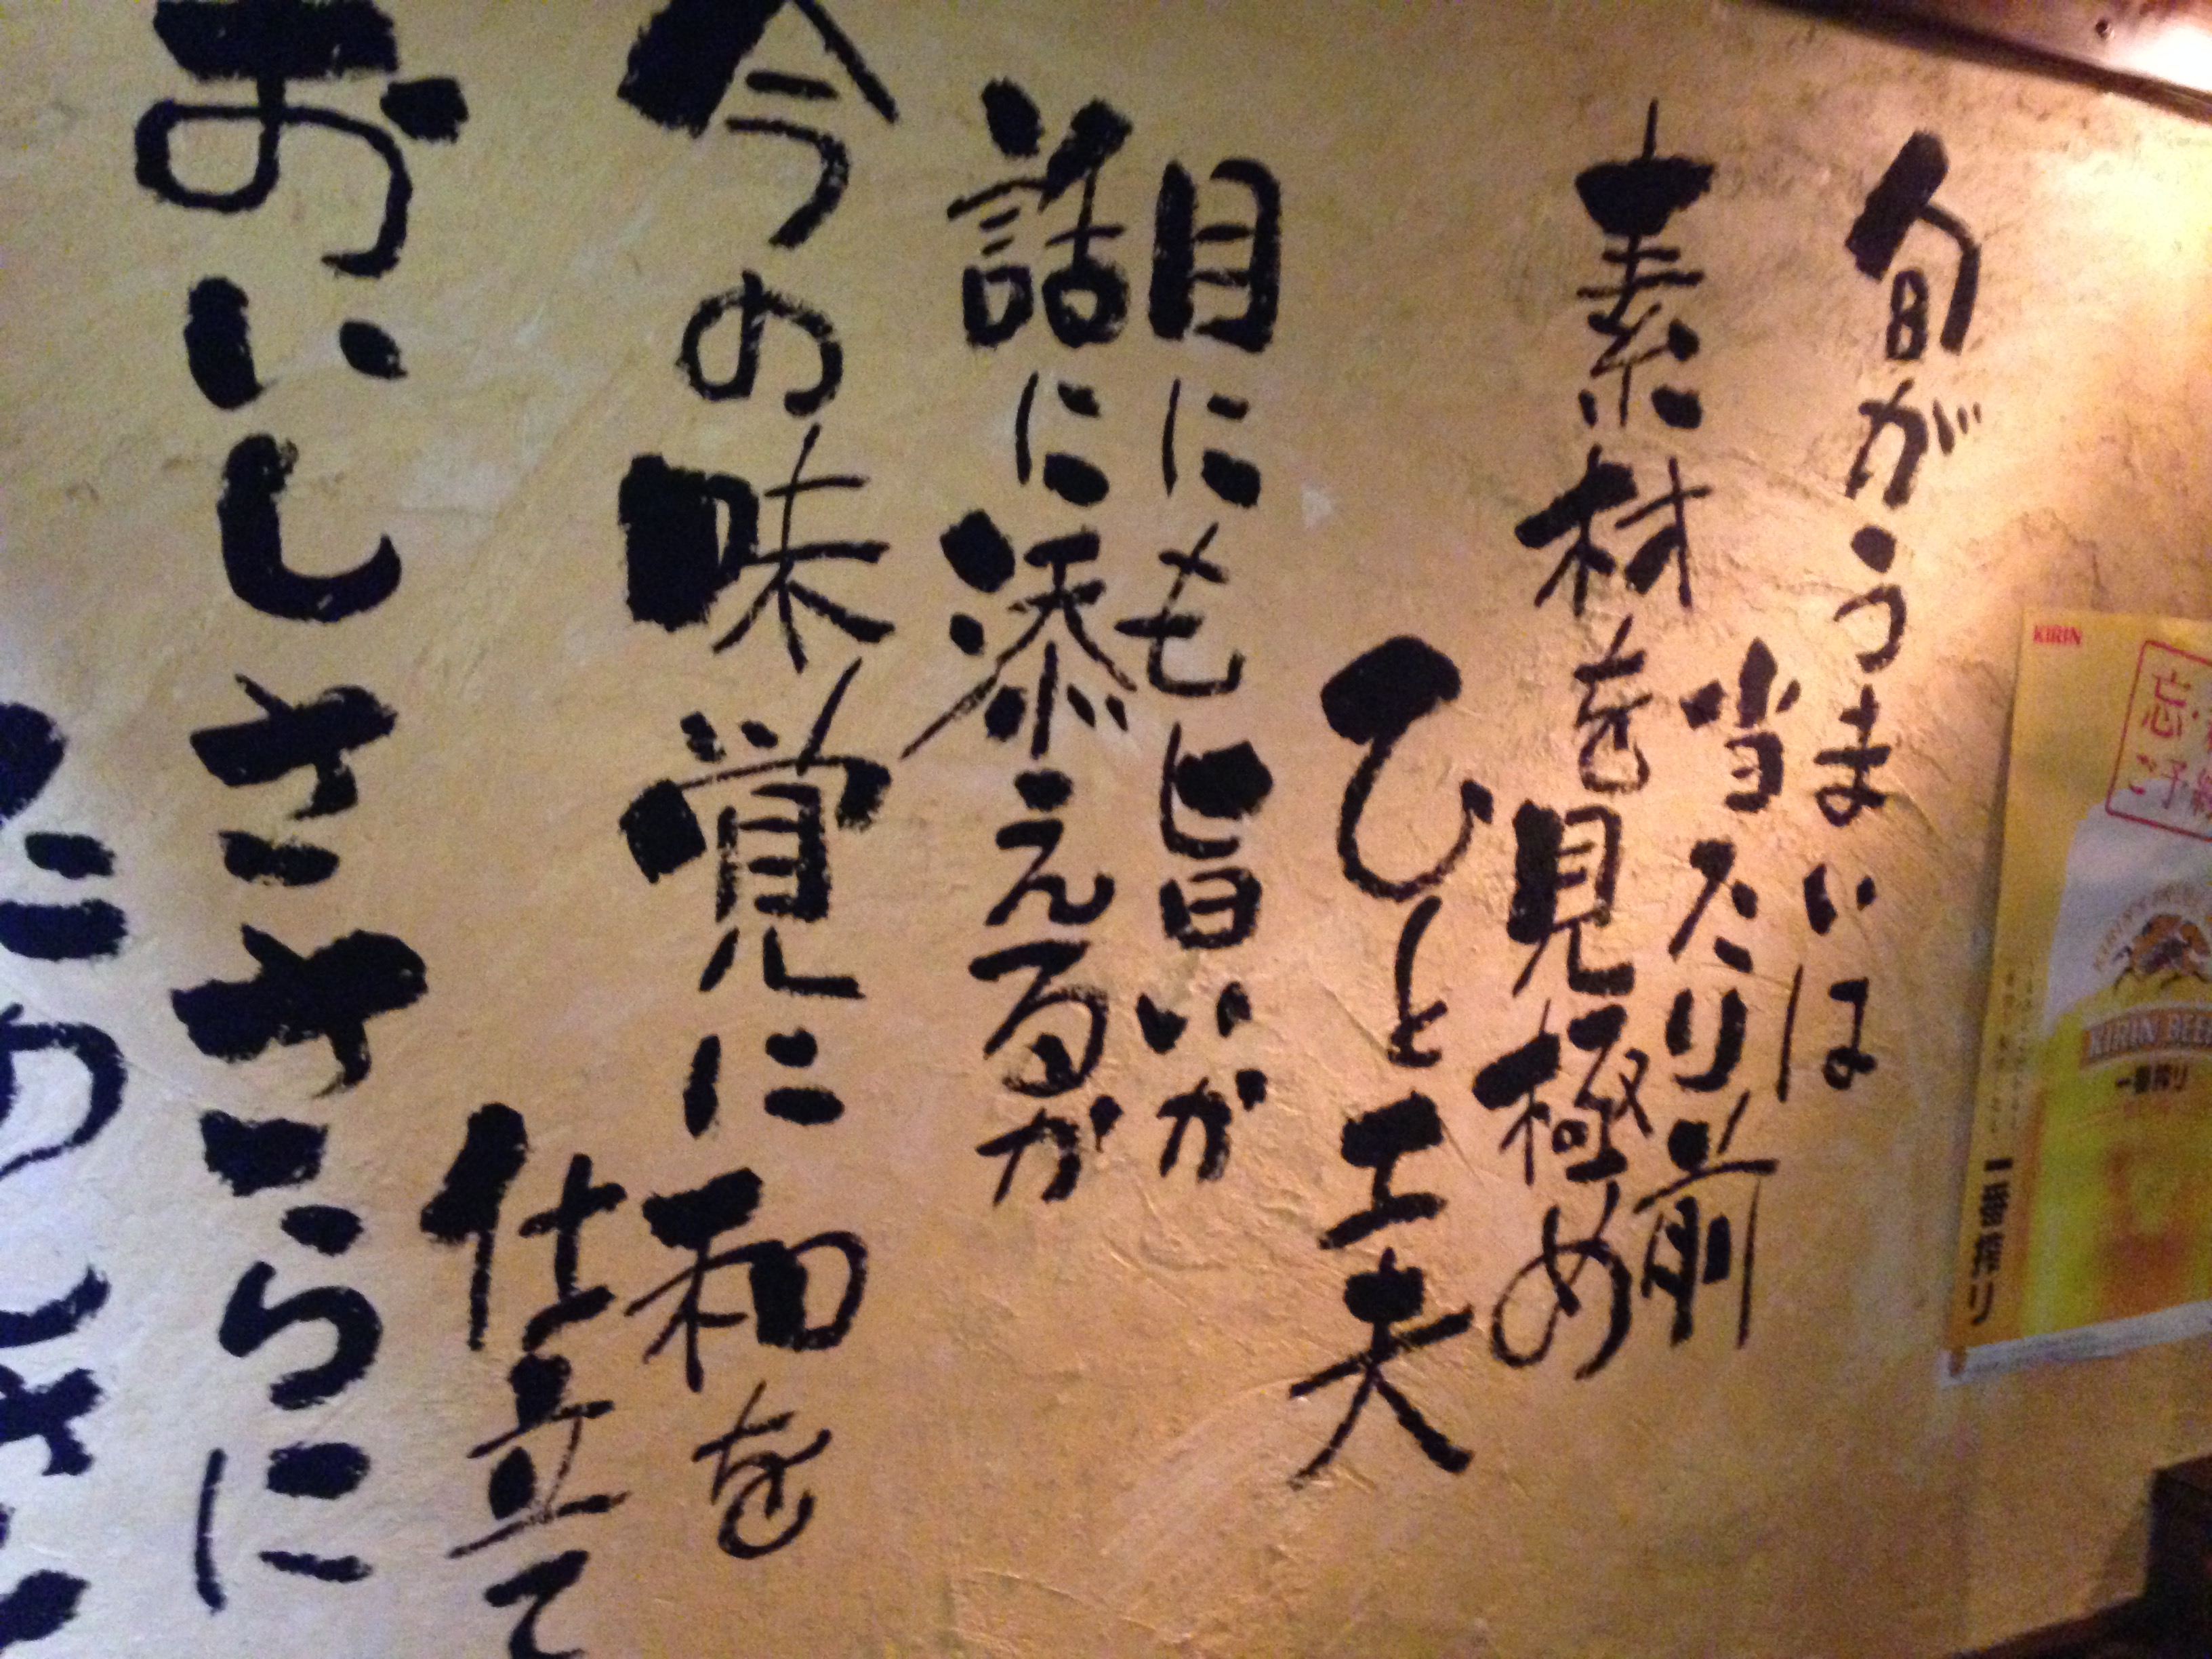 旬がうまいは
当たり前
素材を見極め
ひと工夫
目にも旨いが
話に添えるが
今の味覚に和を
仕立て
おいしささらに
KIRIN
KIRIN BEER
一番搾り
一番搾り